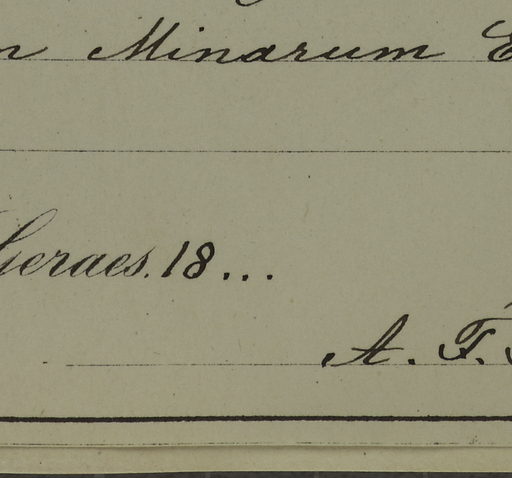 n Minarum E
Geraes. 18...
A. F.